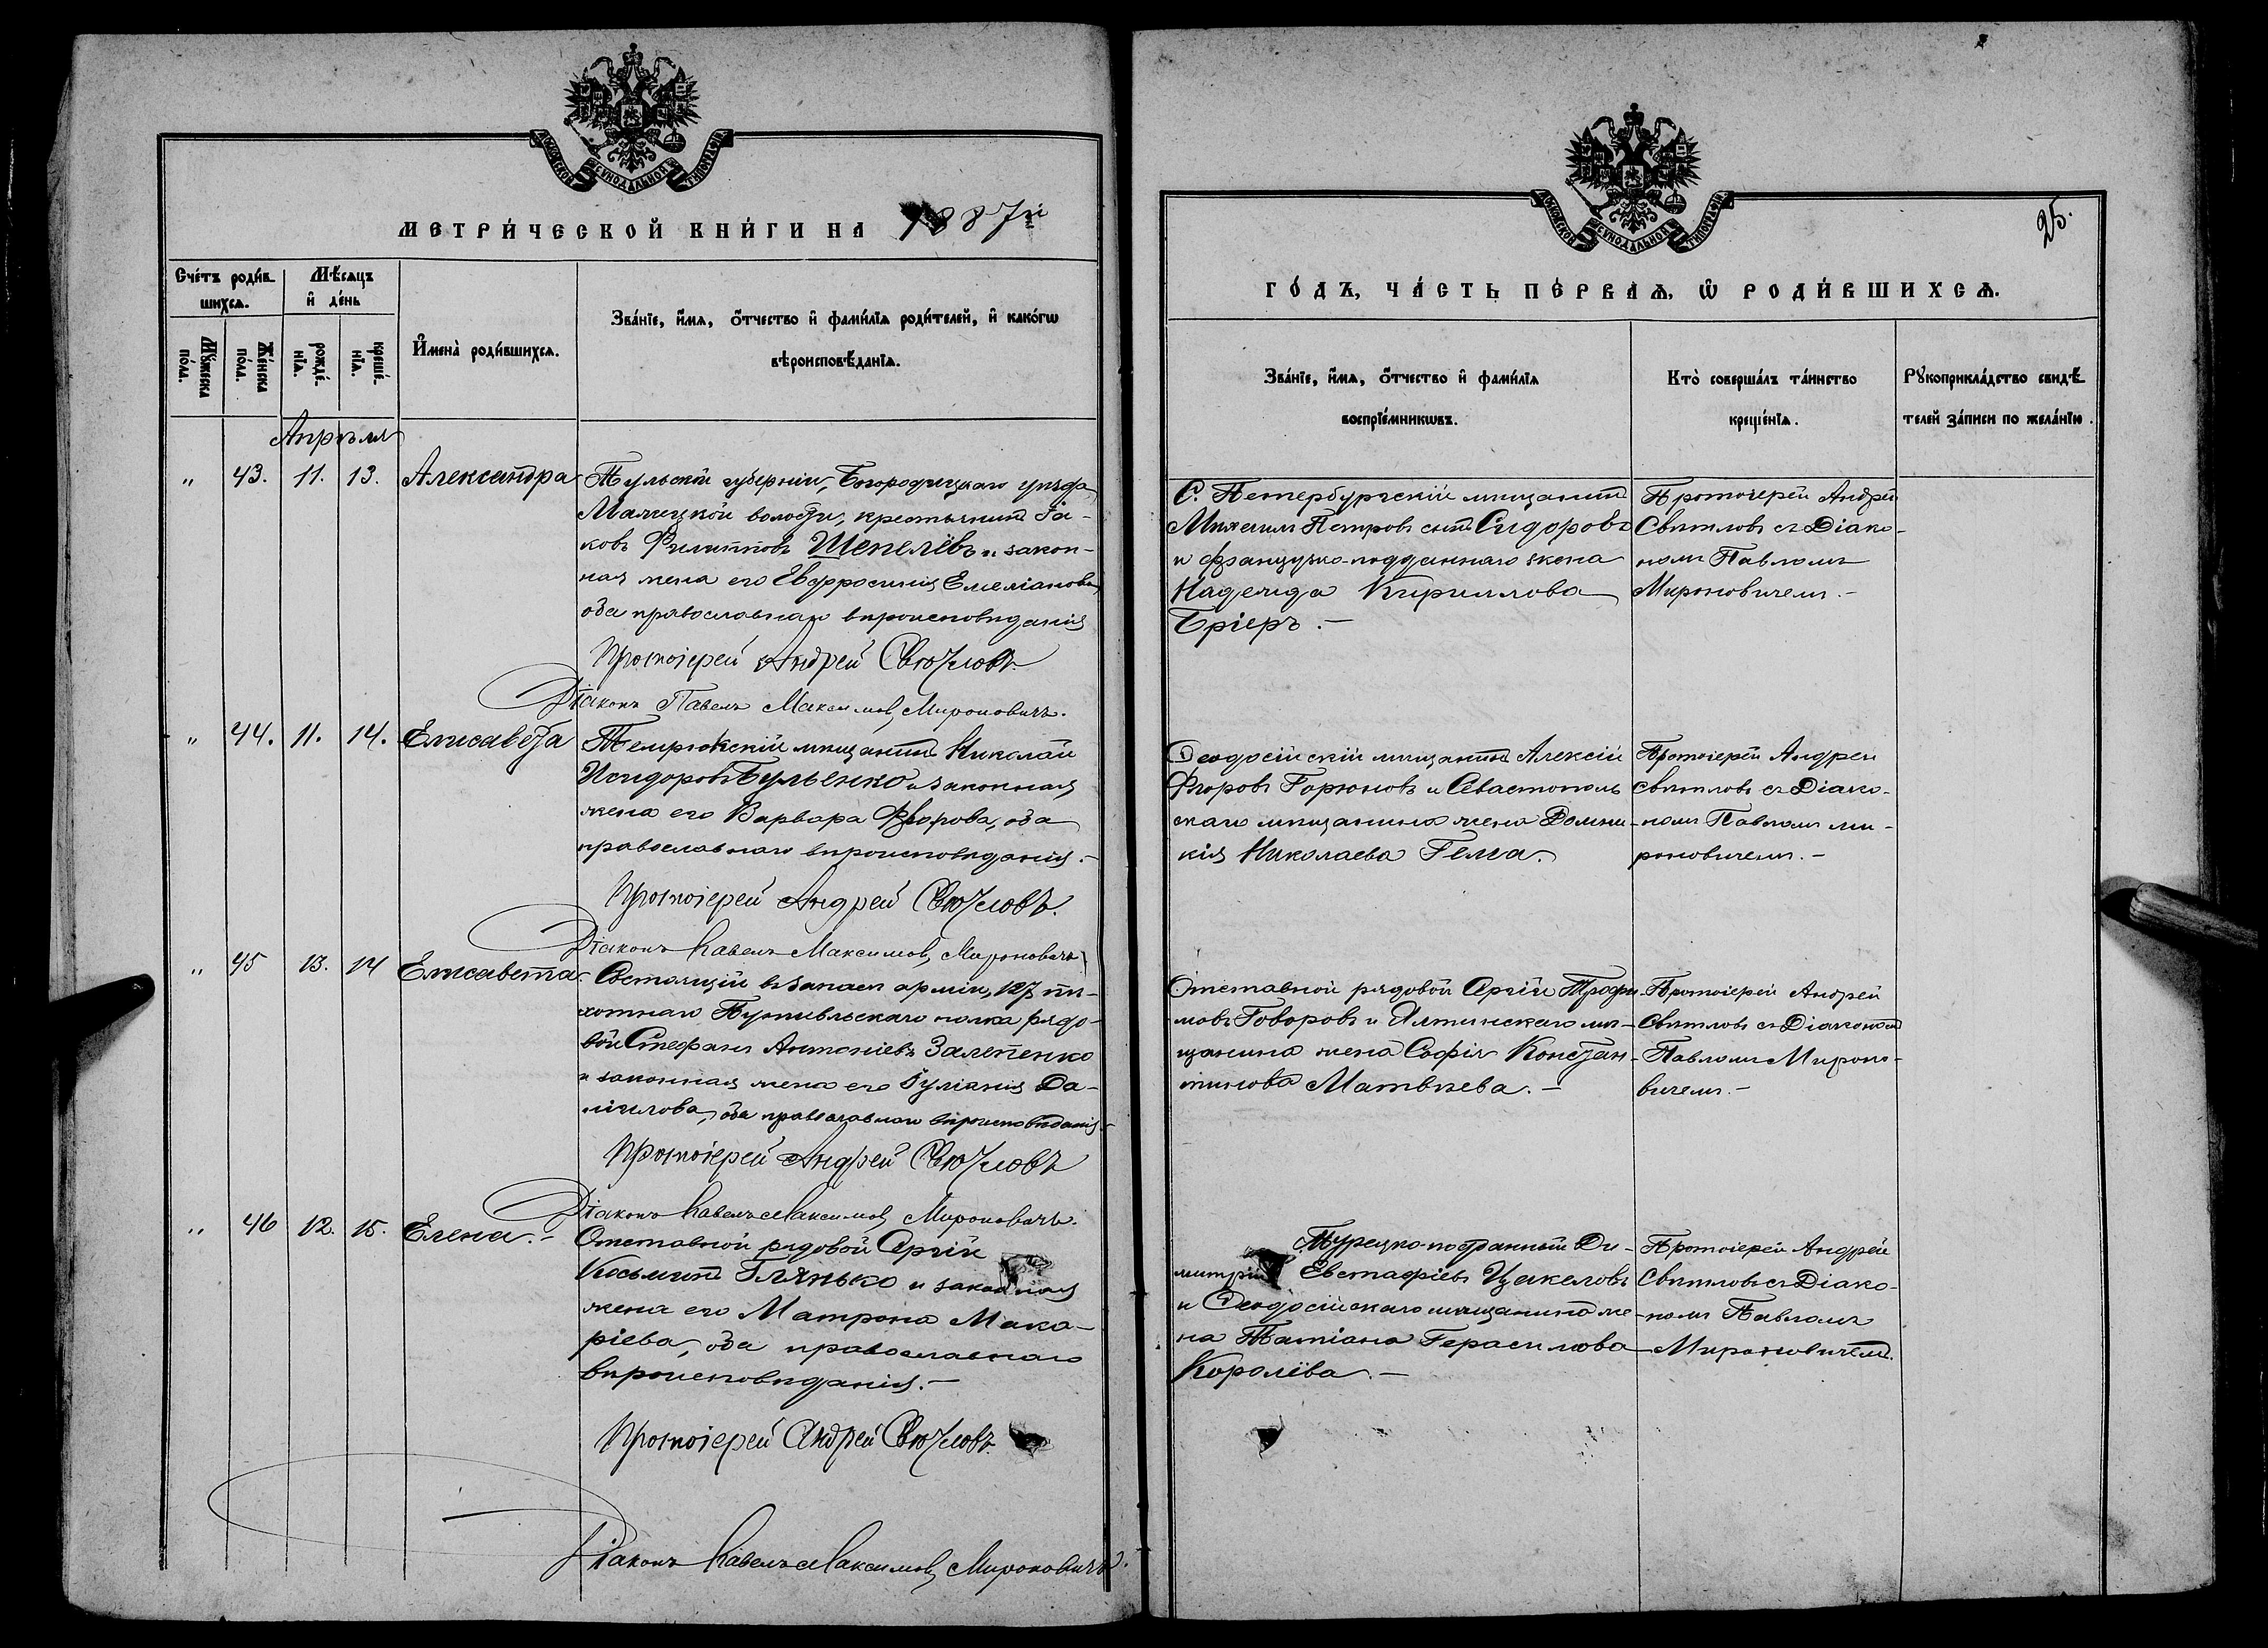 МОСКОВСКОЙ СѴНОДАЛЬНОЙ ТИПОГРАФІИ
МЕТРИ́ЧЕСКОЙ КНИ́ГИ НА 1887й
Сче́тъ роди́в-
шихсѧ.
Мѣ́сѧцъ
и҆ де́нь
Мꙋ́жеска
по́ла.
Же́нска
по́ла.
рожде́-
нїѧ.
креще́-
нїѧ.
И҆мена̀ роди́вшихсѧ.
Зва́нїе, и҆́мѧ, ѻ҆́тчество и҆ фами́лїѧ роди́телей, и҆ како́гѡ
вѣроисповѣ́данїѧ.
Апрѣля
„ 43. 11. 13. Александра
Тульской губерніи, Богородицкаго уѣзда,
волости, крестьянинъ Іа-
ковъ Филипповъ Шепелёвъ и закон-
ная жена его Евфросинія Емеліанова,
оба православнаго вѣроисповѣданія
Протоіерей Андрей Свѣтловъ.
Діаконъ Павелъ Максимов, Мироновичъ.
„ 44. 11. 14. Елисавета
Темрюкскій мѣщанинъ Николай
Исидоровъ Бульенко и законная
жена его Варвара Ѳеорова, оба
православнаго вѣроисповѣданія. –
Протоіерей Андрей Свѣтловъ.
Діаконъ Павелъ Максимов, Мироновичъ
„ 45 13. 14 Елисавета.
Состоящій въ запасѣ арміи, 127 пѣ-
хотнаго Путивльскаго полка рядо-
вой Стефанъ Антоніевъ Залепенко
и законная жена его Іуліанія Да-
ніилова, оба православнаго вѣроисповѣданія. –
Протоіерей Андрей Свѣтловъ
Діаконъ Павелъ Максимов, Мироновичъ.
„ 46 12. 15. Елена. –
Отставной рядовой Сергій
Косьминъ Глянько и законная
жена его Матрона Мака-
ріева, оба православнаго
вѣроисповѣданія. –
Протоіерей Андрей Свѣтловъ.
Діаконъ Павелъ Максимов, Мироновичъ.
МОСКОВСКОЙ СѴНОДАЛЬНОЙ ТИПОГРАФІИ
25.
ГО́ДЪ, ЧА́СТЬ ПЕ́РВАѦ, Ѡ҆ РОДИ́ВШИХСѦ.
Зва́нїе, и҆́мѧ, ѻ҆́тчество и҆ фами́лїѧ
воспрїе́мникѡвъ.
Кто̀ соверша́лъ та́инство
креще́нїѧ.
Рꙋкоприкла́дство свидѣ́-
телей за́писи по жела́нїю.
С. Петербургскій мѣщанинъ
Михаилъ Петровъ сынъ Сидоровъ
и французско-подданнаго жена
Надежда Кириллова
Бріеръ. –
Протоіерей Андрей
Свѣтловъ съ Діако-
номъ Павломъ
Мироновичемъ. –
Ѳеодосійскій мѣщанинъ Алексій
Ѳеоровъ Горюновъ и Севастополь
скаго мѣщанина жена Домни-
кія Николаева Гелла. –
Протоіерей Андрей
Свѣтловъ съ Діако-
номъ Павломъ Ми-
роновичемъ. –
Отставной рядовой Сергій Трофи-
мовъ Говоровъ и Ялтинскаго мѣ-
щанина жена Софія Констан-
тинова Матвѣева. –
Протоіерей Андрей
Свѣтловъ съ Діакономъ
Павломъ Мироно-
вичемъ. –
Турецко-подданный Ди-
митрій Евстафіевъ Цакеловъ
и Ѳеодосійскаго мѣщанина же-
на Татіана Герасимова
Королёва. –
Протоіерей Андрей
Свѣтловъ съ Діако-
номъ Павломъ
Мироновичемъ.